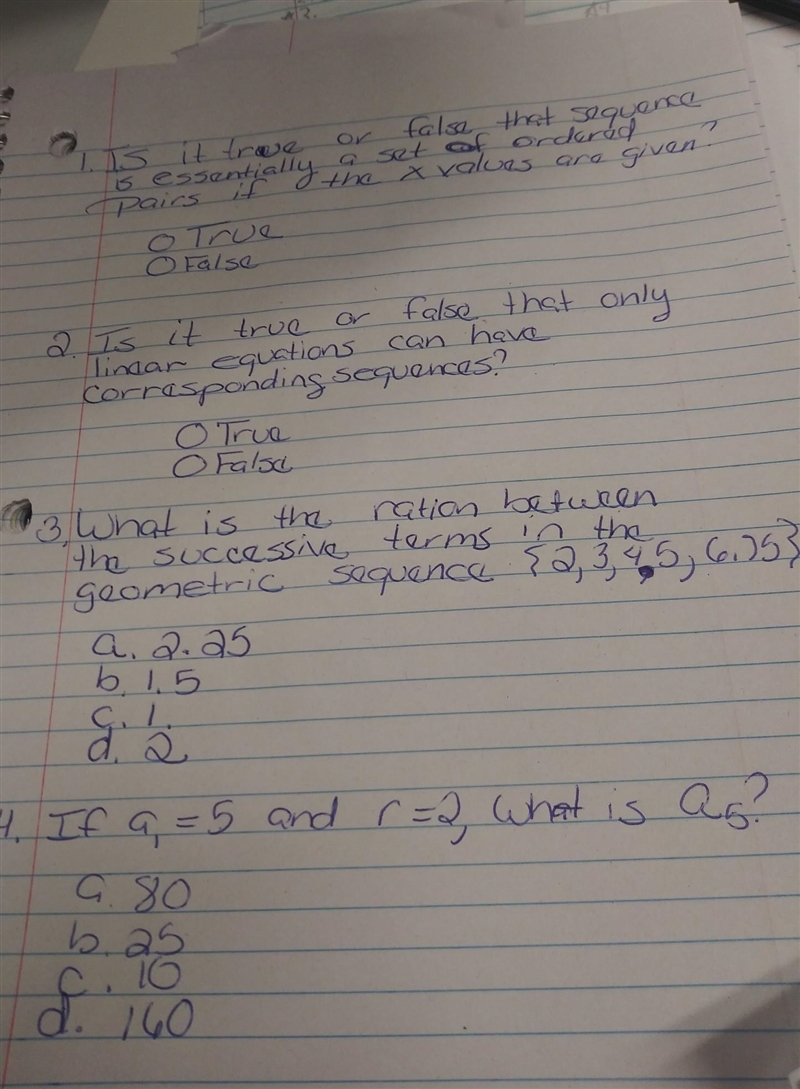 1. Is it true or false that sequence
is essentially a set of ordered
pairs if the x values are given?
O True
O False
2. Is it true or false that only
linear equations can have
corresponding sequences?
O True
O False
3. What is the ration between
the successive terms in the
geometric sequence {2, 3, 4.5, 6.75}
a. 2.25
b. 1.5
c. 1.
d. 2
4. If a₁ = 5 and r = 2, what is a₅?
a. 80
b. 25
c. 10
d. 160